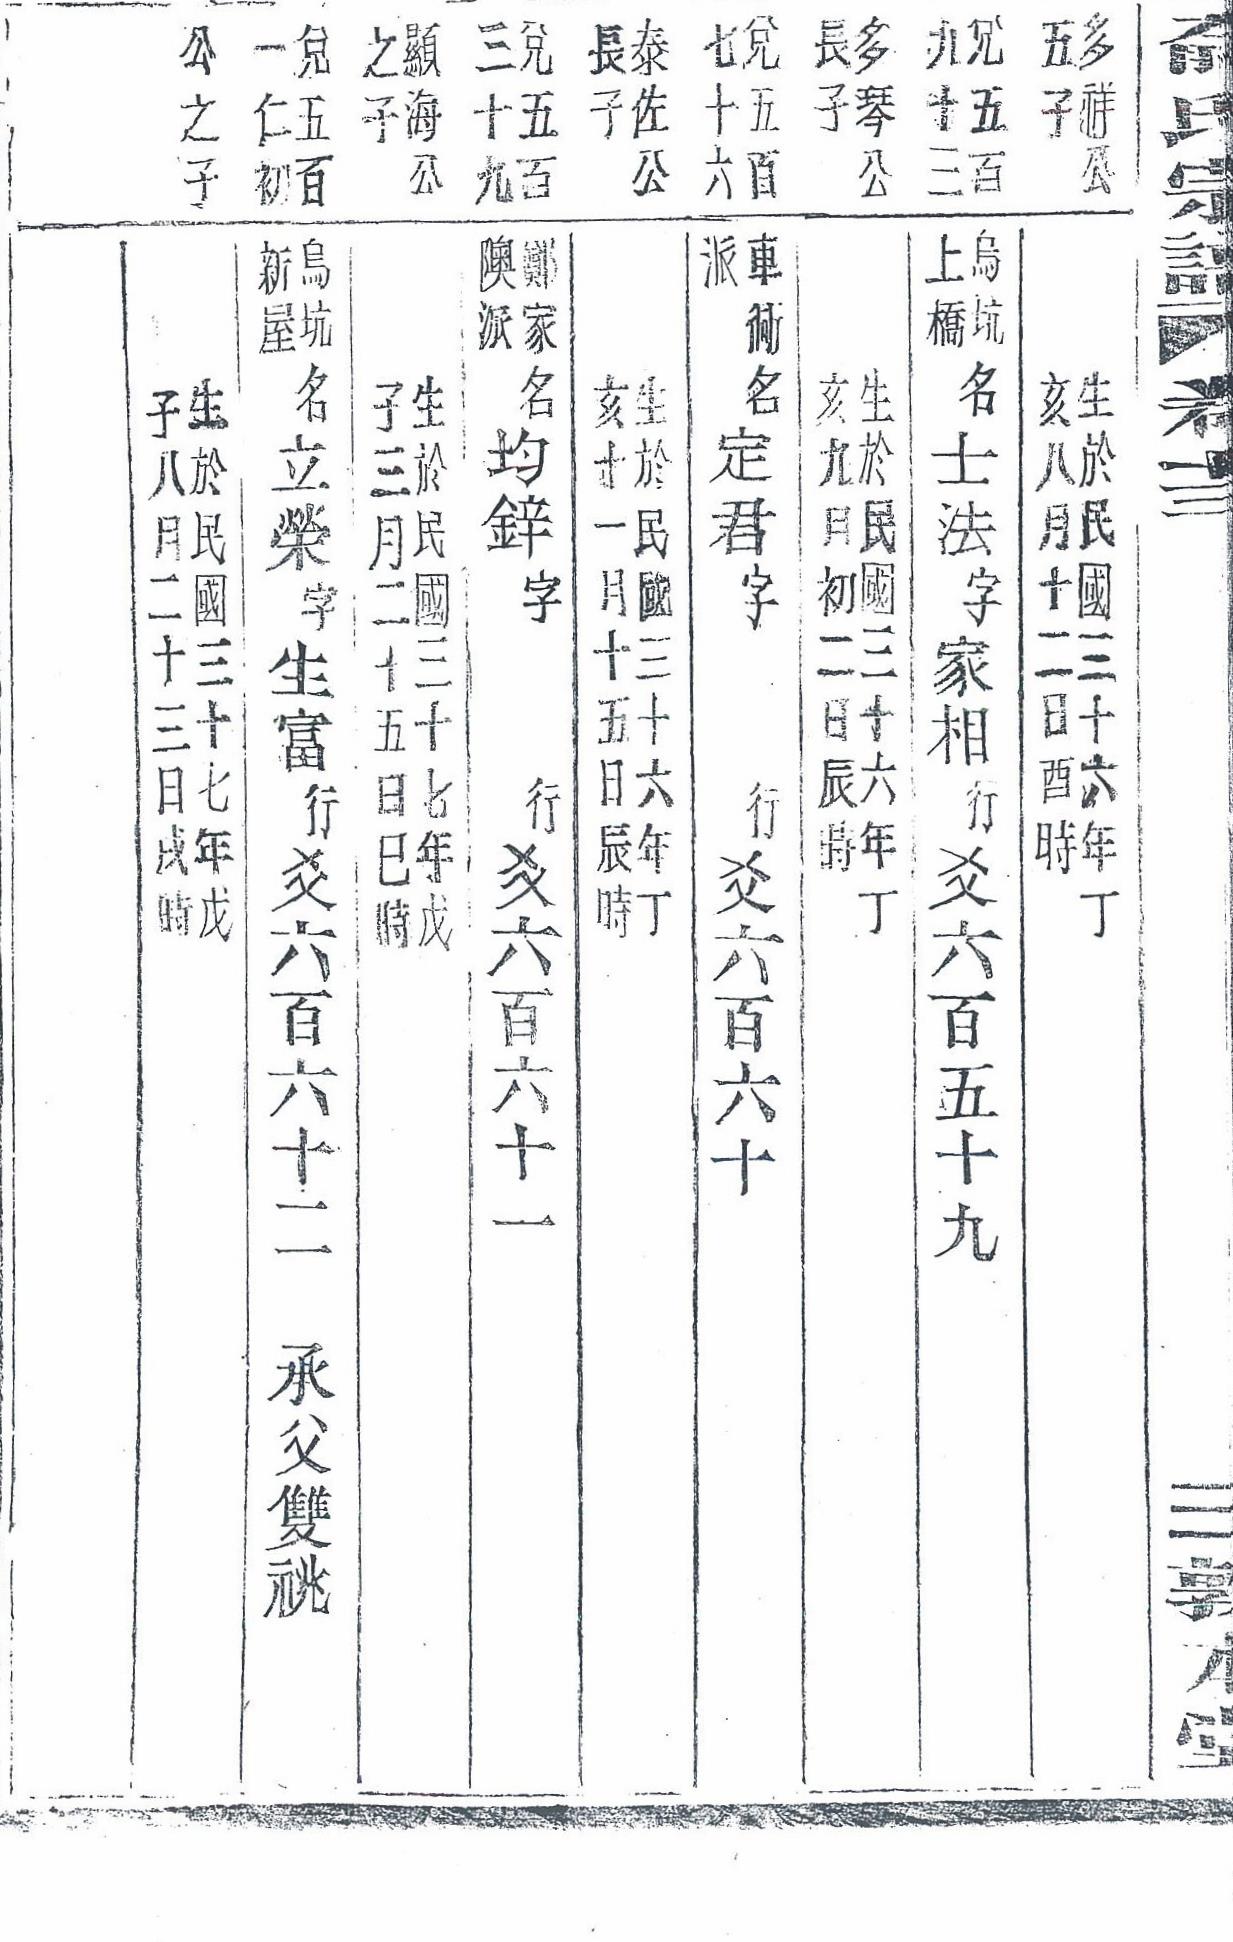 氏宗譜 卷三
三 敦本堂
多祥公
五子
生於民國三十六年丁
亥八月十二日酉時
兌五百
九十三
多琴公
長子
烏坑
上橋
名士法字家相行爻六百五十九
生於民國三十六年丁
亥九日初二日辰時
兌五百
七十六
泰佐公
長子
車衕
派
名定君字 行爻六百六十
生於民國三十六年丁
亥十一月十五日辰時
兌五百
三十九
顯海公
之子
鄭家
隩派
名均鋅字 行爻六百六十一
生於民國三十七年戊
子三月二十五日巳時
兌五百
一仁初
公之子
烏坑
新屋
名立榮字生富行爻六百六十二 承父雙祧
生於民國三十七年戊
子八月二十三日戌時